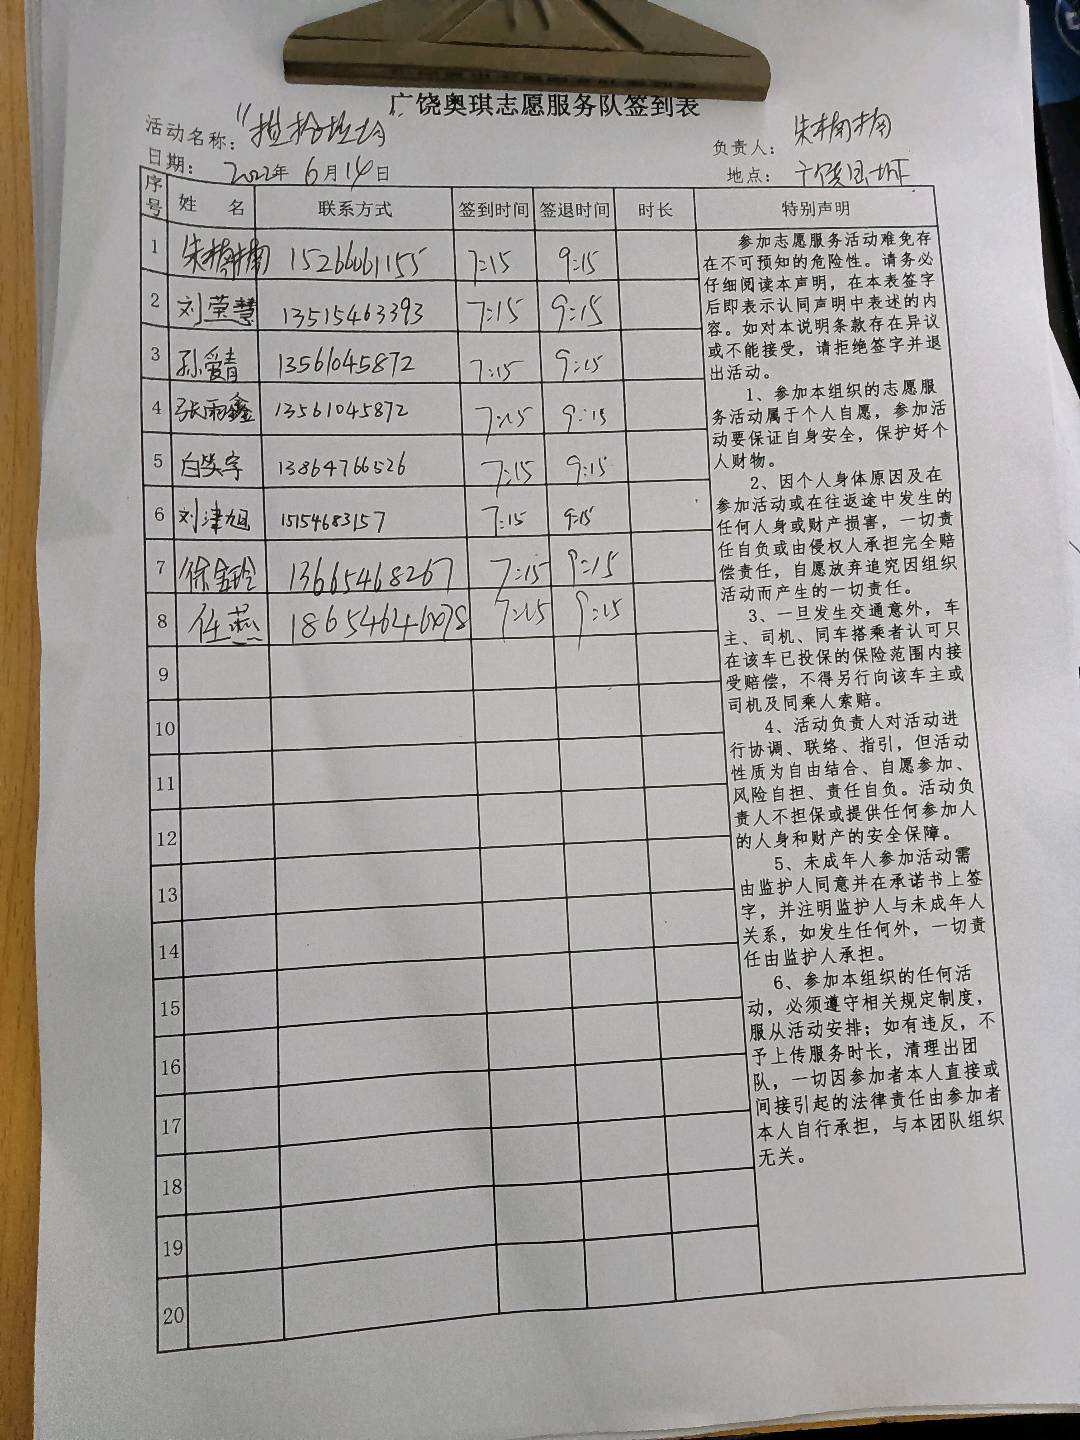 广饶奥琪志愿服务队签到表
活动名称：
负责人：朱楠楠
日期：2022年6月14日
地点：
序号 姓 名 联系方式 签到时间 签退时间 时长 特别声明
1 朱楠楠 15266061155 7:15 9:15
2 刘莹慧 13515463393 7:15 9:15
3 孙爱青 13561045872 7:15 9:15
4 张雨鑫 13561045872 7:15 9:15
5 白笑宇 13864766526 7:15 9:15
6 刘津旭 15154683157 7:15 9:15
7 徐金玲 13665468267 7:15 9:15
8 任燕 18654646078 7:15 9:15
9
10
11
12
13
14
15
16
17
18
19
20
参加志愿服务活动难免存
在不可预知的危险性。请务必
仔细阅读本声明，在本表签字
后即表示认同声明中表述的内
容。如对本说明条款存在异议
或不能接受，请拒绝签字并退
出活动。
1、参加本组织的志愿服
务活动属于个人自愿，参加活
动要保证自身安全，保护好个
人财物。
2、因个人身体原因及在
参加活动或在往返途中发生的
任何人身或财产损害，一切责
任自负或由侵权人承担完全赔
偿责任，自愿放弃追究因组织
活动而产生的一切责任。
3、一旦发生交通意外，车
主、司机、同车搭乘者认可只
在该车已投保的保险范围内接
受赔偿，不得另行向该车主或
司机及同乘人索赔。
4、活动负责人对活动进
行协调、联络、指引，但活动
性质为自由结合、自愿参加、
风险自担、责任自负。活动负
责人不担保或提供任何参加人
的人身和财产的安全保障。
5、未成年人参加活动需
由监护人同意并在承诺书上签
字，并注明监护人与未成年人
关系，如发生任何外，一切责
任由监护人承担。
6、参加本组织的任何活
动，必须遵守相关规定制度，
服从活动安排；如有违反，不
予上传服务时长，清理出团
队，一切因参加者本人直接或
间接引起的法律责任由参加者
本人自行承担，与本团队组织
无关。